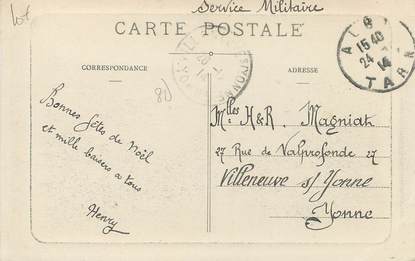 lot
Service Militaire
CARTE POSTALE
CORRESPONDANCE
ADRESSE
ALBI
15 40
24
14
TARN
80
Bonnes fêtes de Noël
et mille baisers à tous
Henry
Mlles H&R. Magniah
27 Rue de Valprofonde 27
Villeneuve s/ Yonne
Yonne